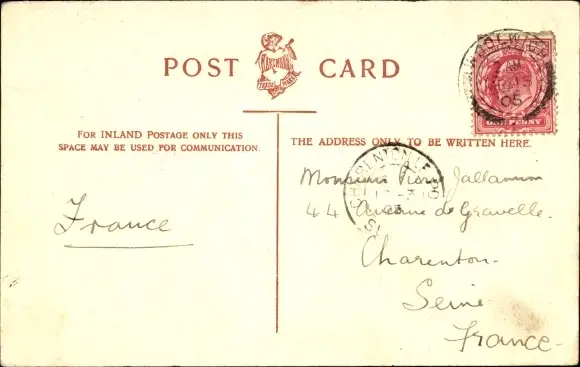 POST CARD
HARTMANN
TRADE MARK
FOR INLAND POSTAGE ONLY THIS
SPACE MAY BE USED FOR COMMUNICATION.
THE ADDRESS ONLY TO BE WRITTEN HERE.
WOOLWICH
05
ONE PENNY
CHARENTON LE PO
Monsieur Pierre
44 Avenue de Gravelle.
Charenton-
Seine
France-
France